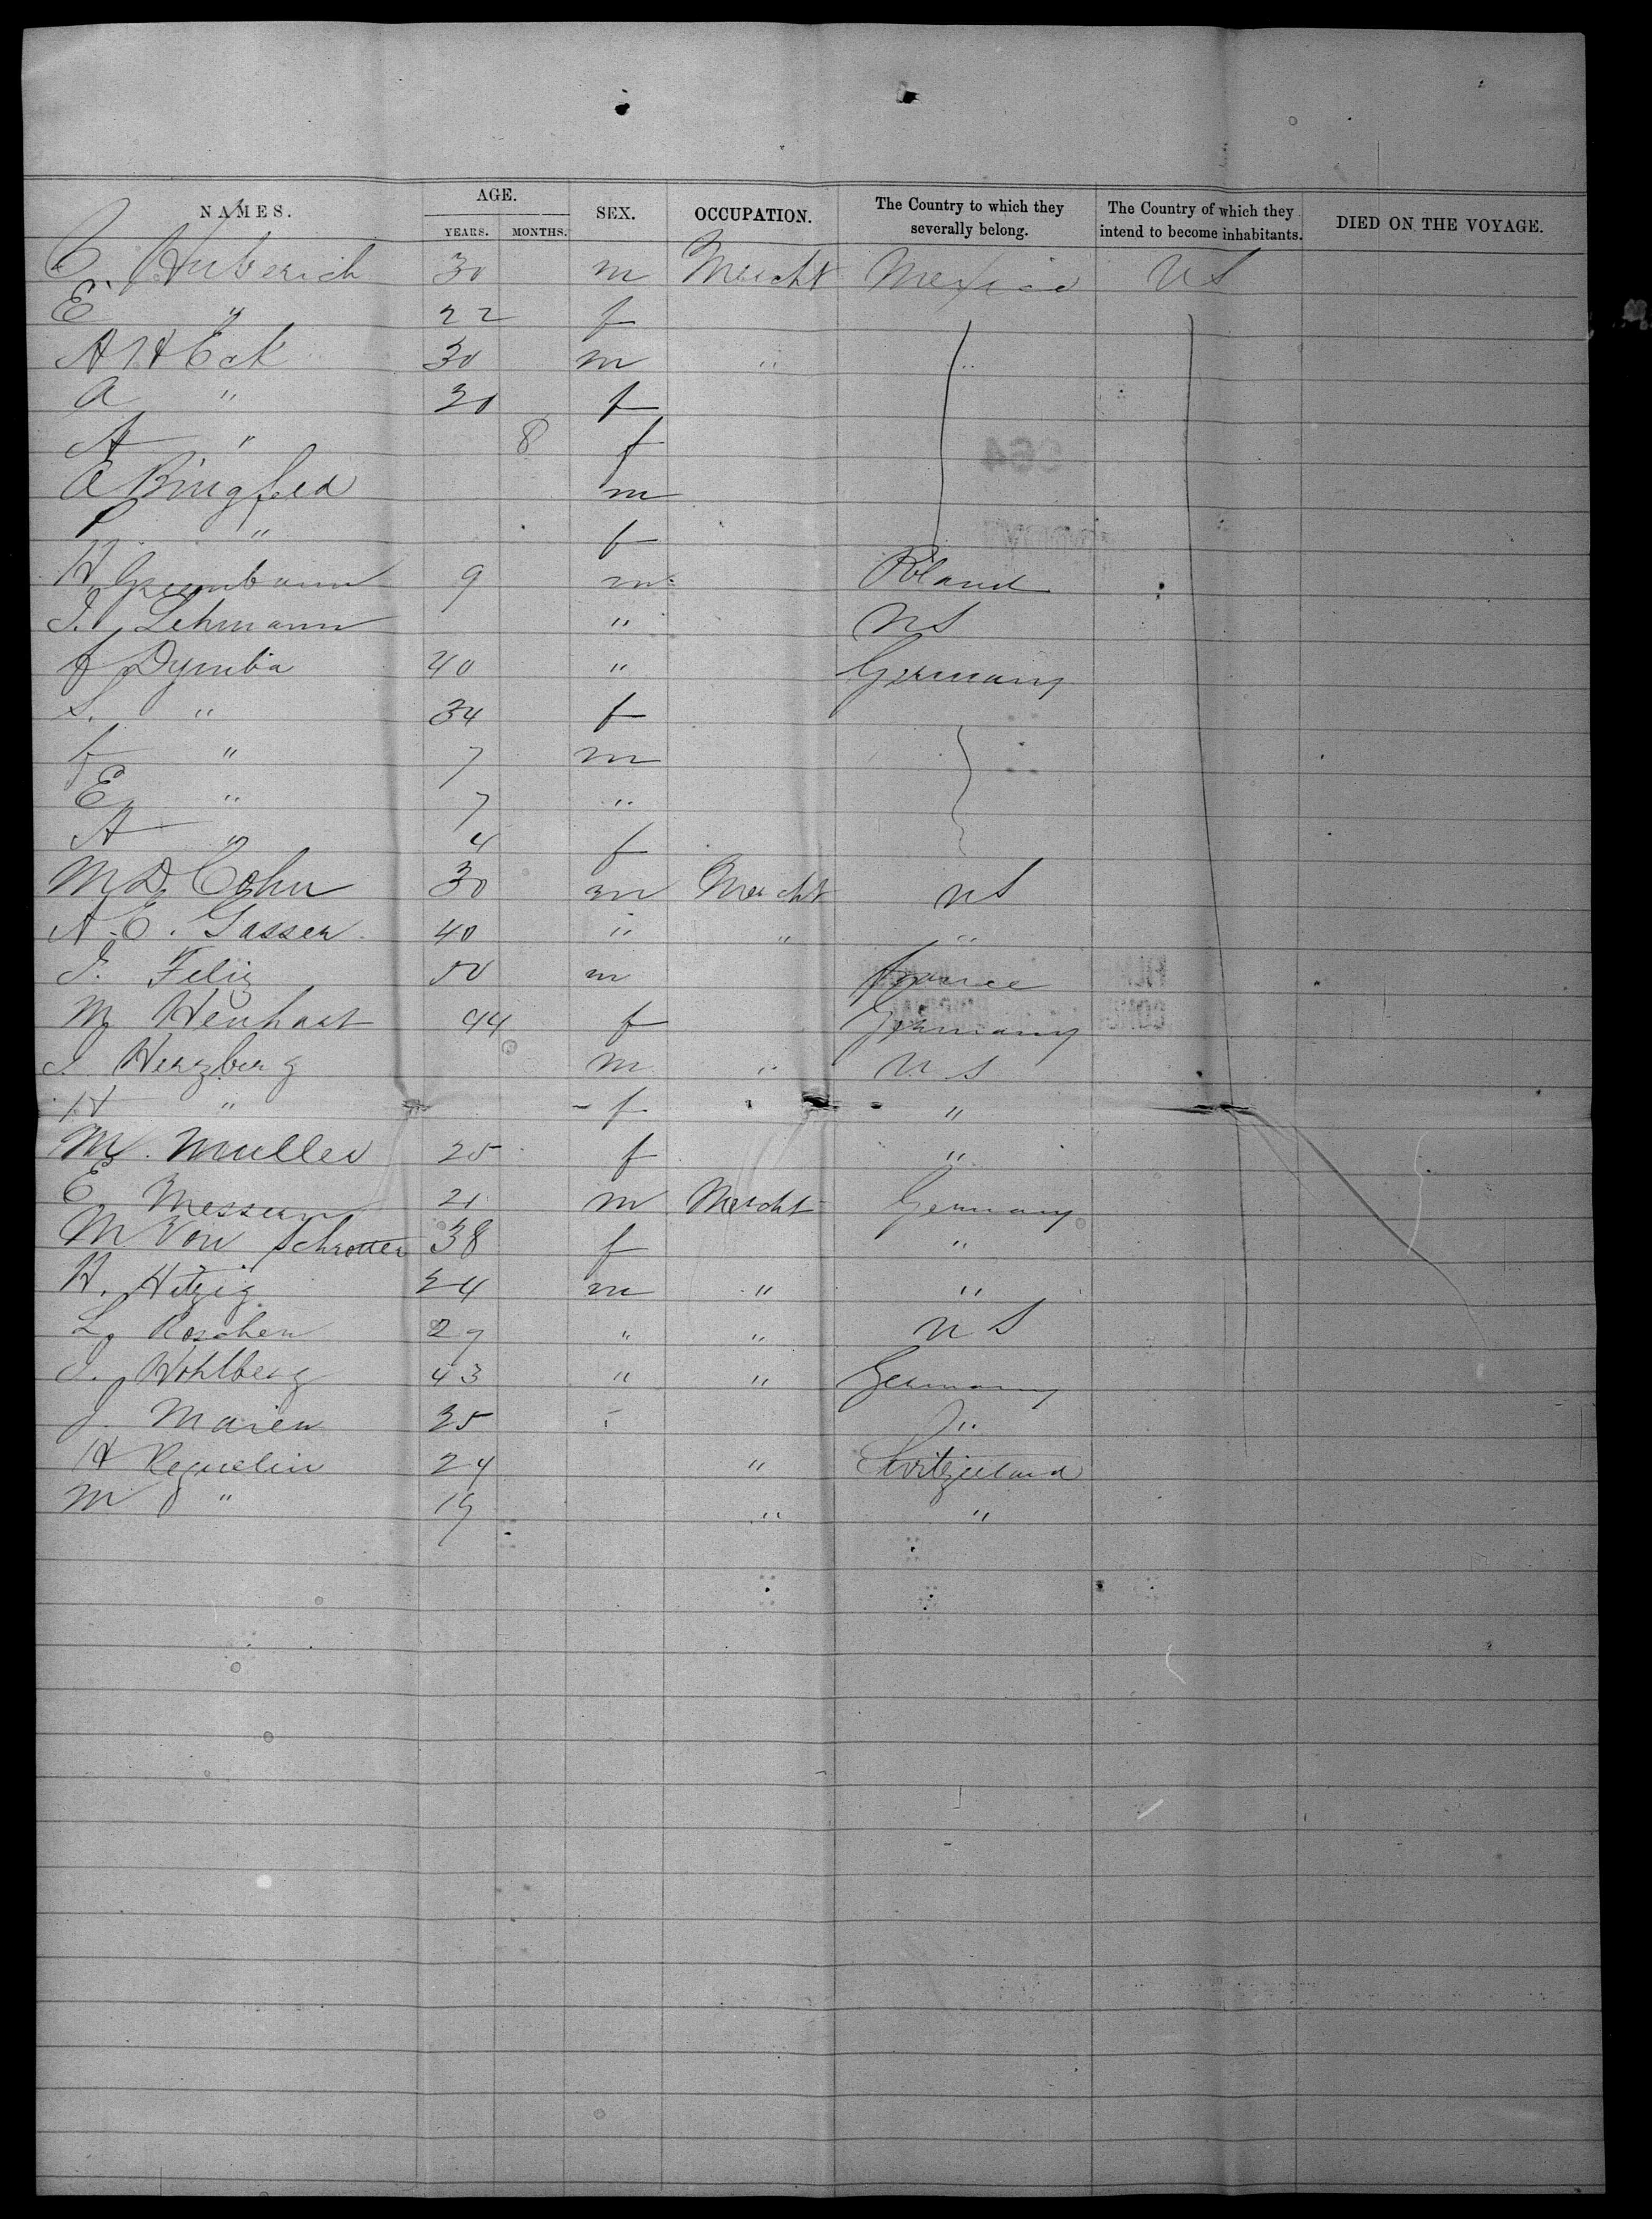 NAMES. AGE. YEARS. MONTHS. SEX. OCCUPATION. The Country to which they severally belong. The Country of which they intend to become inhabitants. DIED ON THE VOYAGE.
C. Huberich 30 m Mercht Mexico US
E " 22 f
A H Eck 30 m " "
A " 20 f
A " 8 f
A Ringfeld m
P " f
H. Grumbaum 9 m Poland
I. Lehmann " US
F Dymba 40 " Germany
S. " 34 f
F " 7 m
E " 7 "
A " 4 f
M D. Cohn 30 m Mercht US
A. E. Gasser 40 " " "
J. Feliz 50 m France
M Henhart 44 f Germany
I Herzberg m " U S
H " f "
M. Muller 25 f "
E. 21 m Mercht Germany
M Von Schrotter 38 f "
H. Hitzig 24 m " "
L. Roschen 29 " " U S
I. Wohlberg 43 " " Germany
J. Marien 35 " "
H Requelin 24 " Switzerland
M " 19 " "